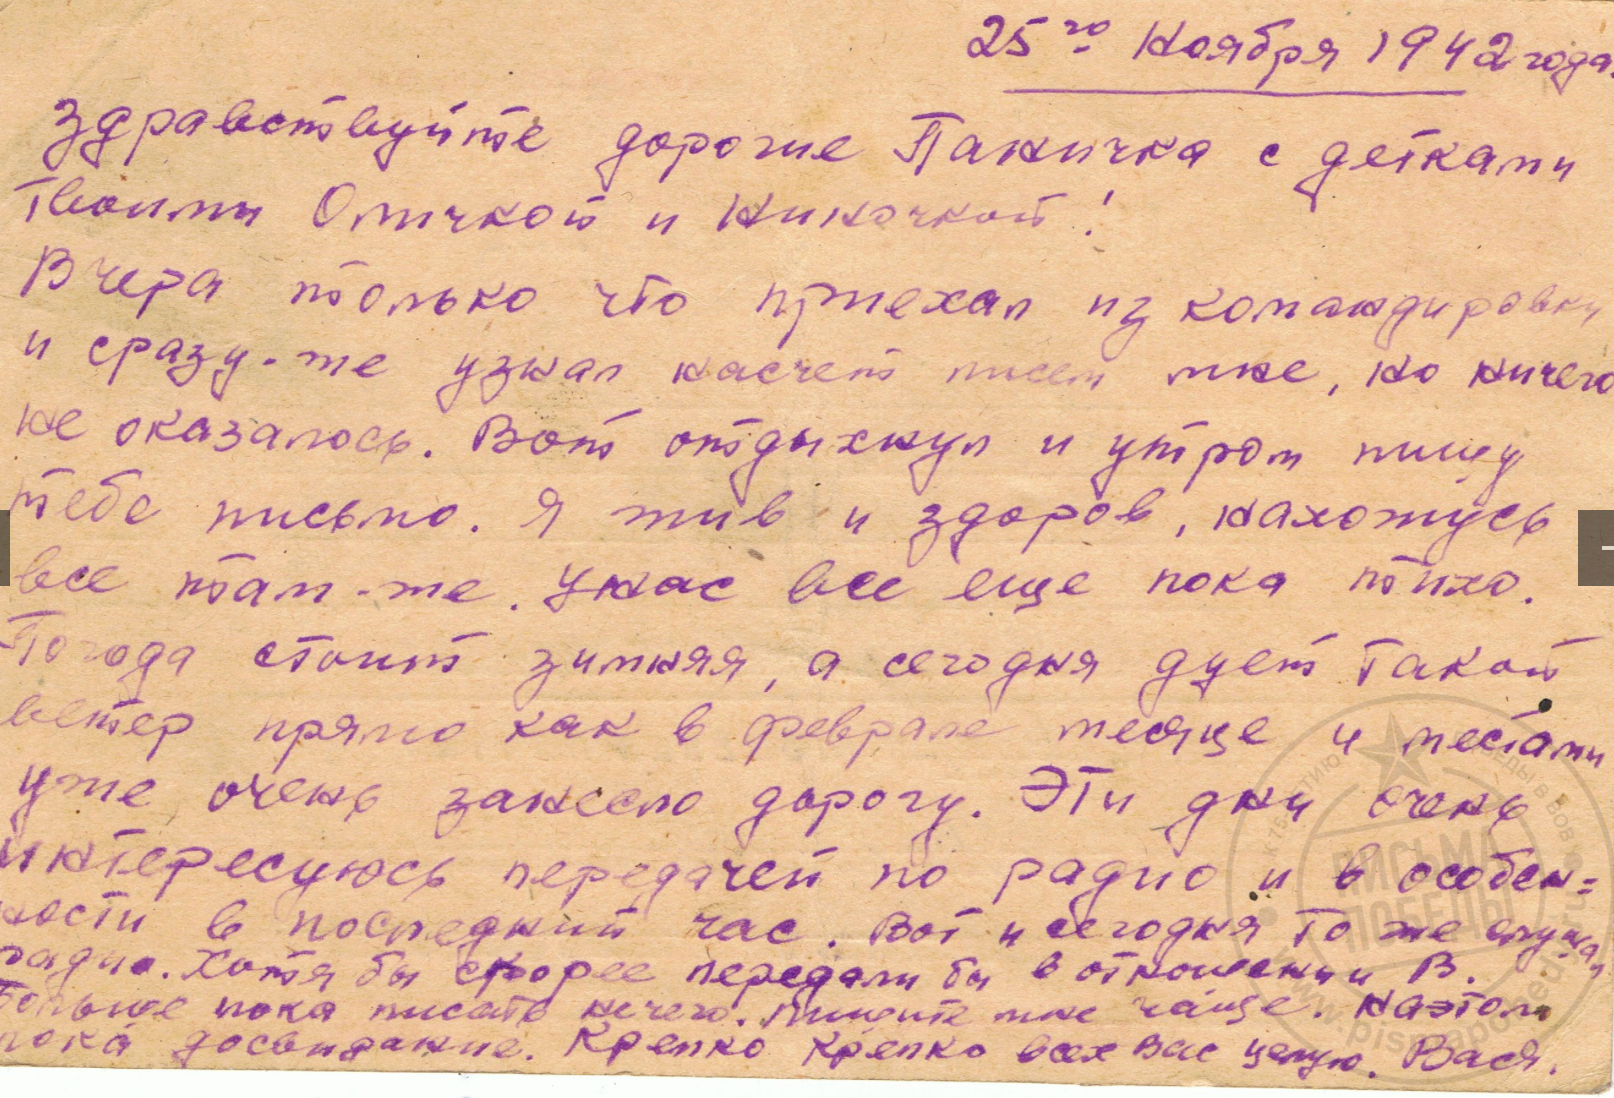 25го Ноября 1942 года.
Здравствуйте дорогие Паничка с детками
Твоими Оличкой и Ниночкой!
Вчера только что приехал из командировки
и сразу-же узнал насчет писем мне, но ничего
не оказалось. Вот отдыхнул и утром пишу
тебе письмо. Я жив и здоров, нахожусь
все там-же. У нас все еще пока тихо.
Погода стоит зимняя, а сегодня дует такой
ветер прямо как в феврале месяце и местами
уже очень занесло дорогу. Эти дни очень
интересуюсь передачей по радио и в особен=
ности в последний час. Вот и сегодня то же слушал
радио. Хотя бы скорее передали бы в отношении В.
Больше пока писать нечего. Пишите мне чаще. Наэтом
пока досвидание. Крепко Крепко всех Вас целую. Вася.
К 75-ЛЕТИЮ ПОБЕДЫ В ВОВ
ПИСЬМА
ПОБЕДЫ
www.pismapobedy.ru